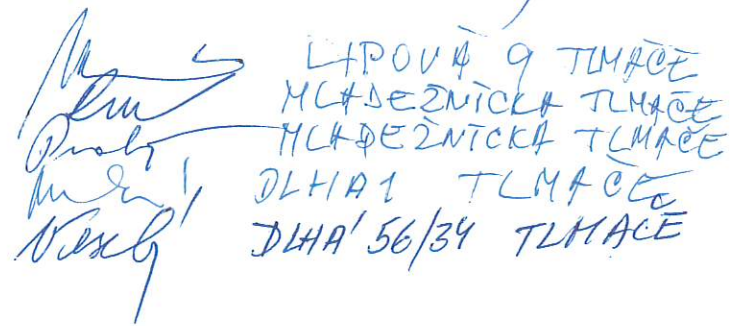 LIPOVÁ 9 TLMAČE
MLADEŽNÍCKA TLMAČE
MLADEŽNÍCKA TLMAČE
DLHA 1 TLMAČE
Veselý DLHÁ 56/34 TLMAČE